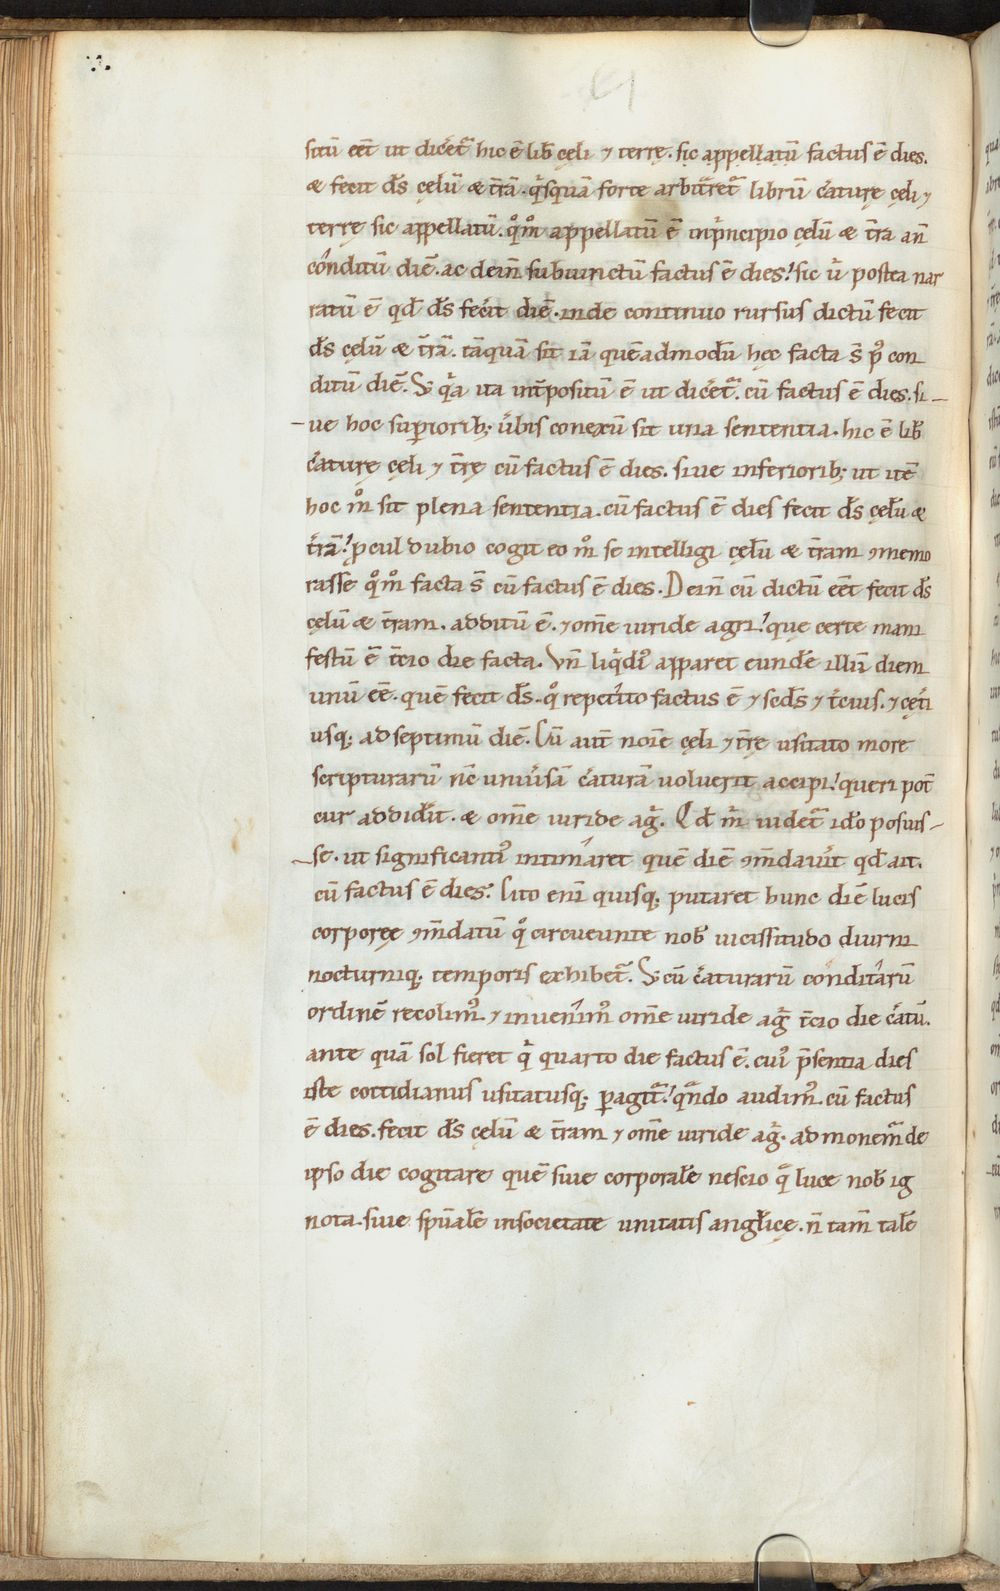 sitū eēt ut dicẽt᷑ hic ē lib̄ cęli ⁊ terrę. sic appellatū factus ē dies.
& fecit d̄s cęlū & t̄rā. q̇squā forte arbitret᷑ librū c̓aturę cęli ⁊
terrę sic appellatū. qͦm̊ appellatū ē inp̓ncipio cęlū & t̄ra an̄
conditū diē. ac dein̄ subiunctū factus ē dies? sic u̓ postea nar
ratū ē qd̄ d̄s fecit diē. inde continuo rursus dictū fecit
d̄s cęlū & t̄rā. tāquā sit iā quēadmodū hęc facta s̄ p᷒ con
ditū diē. S; q̓a ita int̄positū ē ut dicet᷑. cū factus ē dies. si-
-ue hoc supiorib; u̓bis conexū sit una sententia. hic ē lib̄
c̓aturę cęli ⁊ t̄rę cū factus ē dies. siue inferiorib; ut itē
hoc m̊ sit plena sententia. cū factus ē dies fecit d̄s cęlū &
t̄rā? ꝓcul dubio cogit eo m̊ se intelligi cęlū & t̄ram ꝯmemo
rasse qͦm̊ facta s̄ cū factus ē dies. Dein̄ cū dictū eēt fecit d̄s
cęlū & t̄ram. additū ē. ⁊ om̄e uiride agri? quę certe mani
festū ē t̄cio die facta. Vn̄ liq̇di᷒ apparet eundē illū diem
unū eē. quē fecit d̄s. qͦ repetito factus ē ⁊ scd̄s ⁊ t̄cius. ⁊ cęt̓i
usq; ad septimū diē. Cū aut̄ noīe cęli ⁊ t̄rę usitato more
scripturarū nc̄ uniu̓sā c̓aturā uoluerit accipi? queri pot̄
cur addidit. & om̄e uiride ag̓. Qd̄ m̓ uidet᷑ id̄o posuis-
-se. ut significanti᷒ intimaret quē diē ꝯm̄dauit qd̄ ait.
cū factus ē dies? Cito eni quisq; putaret hunc diē lucis
corporęę ꝯm̄datū qͦ circueunte nob̄ uicissitudo diurni
nocturniq; temporis exhibet᷑. S; cū c̓aturarū conditarū
ordinē recolim᷒. ⁊ inuenim᷒ om̄e uiride ag̓ t̄cio die c̓atū.
ante quā sol fieret q̓ quarto die factus ē. cui᷒ p̄sentia dies
iste cottidianus usitatusq; ꝑagit᷑? qͣndo audim᷒. cū factus
ē dies. fecit d̄s cęlū & t̄ram ⁊ om̄e uiride ag̓. admonem᷑ de
ipso die cogitare quē siue corporalē nescio qͣ luce nob̄ ig
nota. siue spūalē insocietate unitatis anglicę. n̄ tam̄ talē